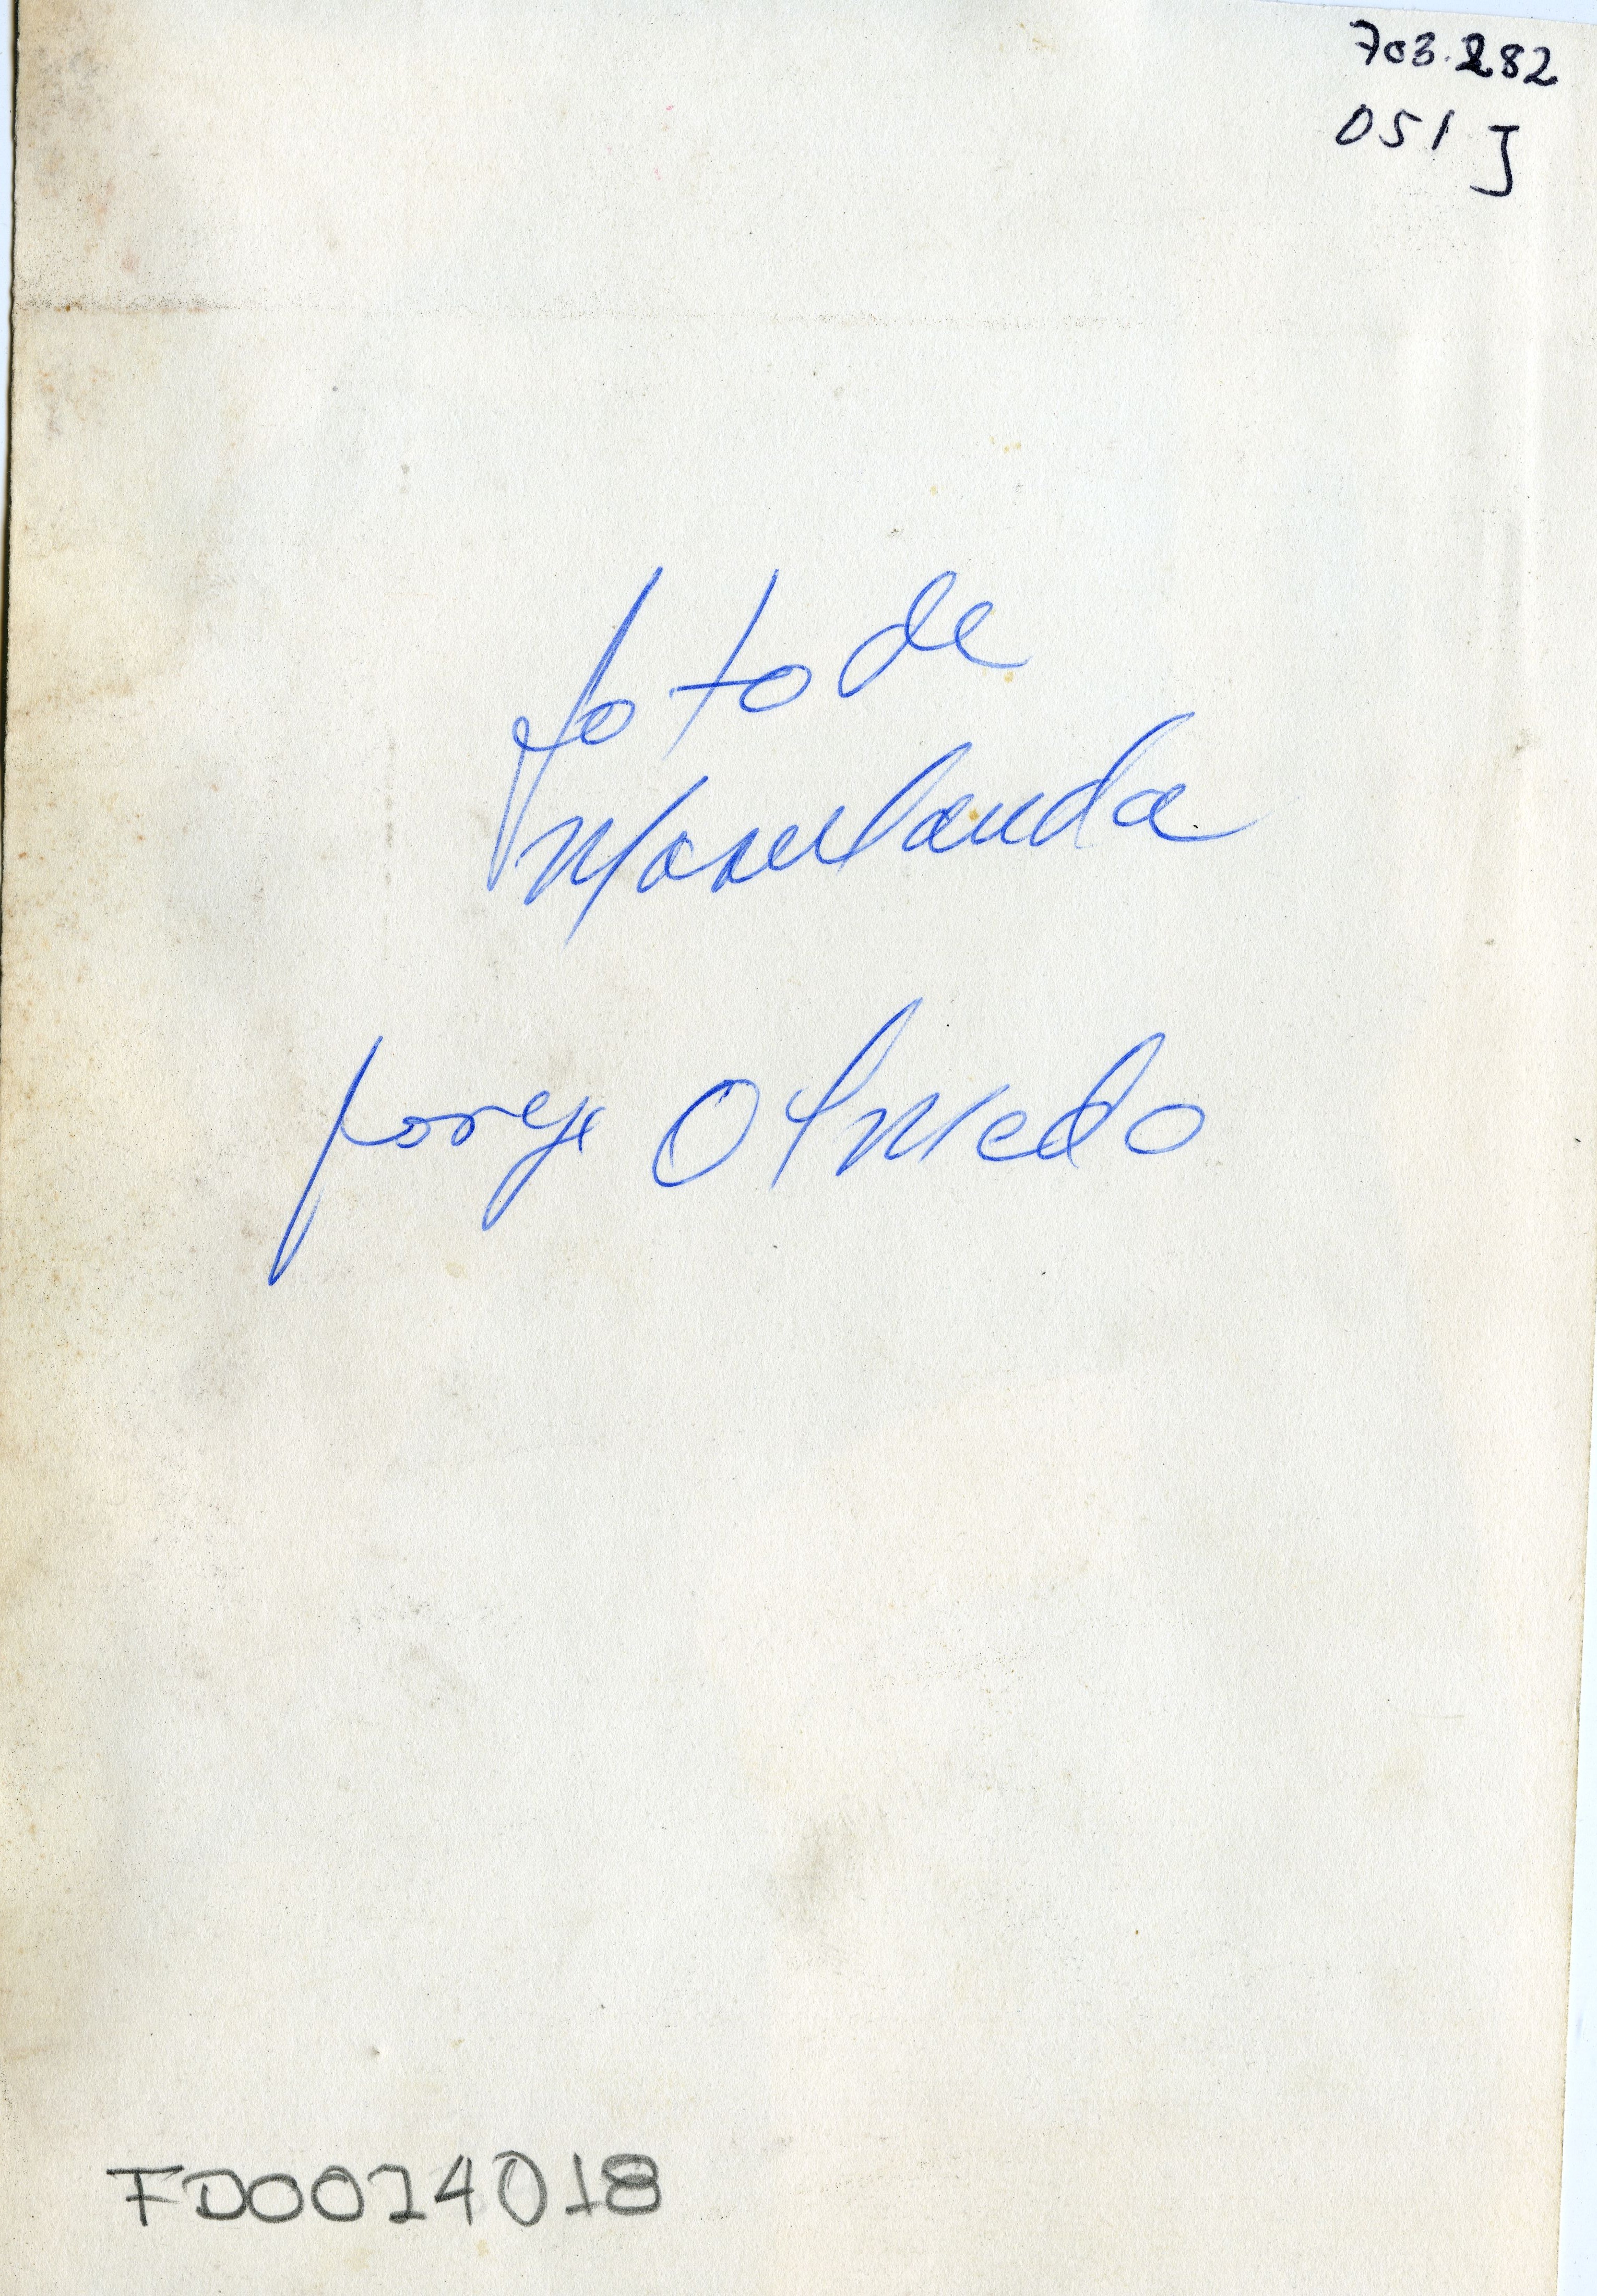 703.282
051 J
foto de
Marulanda
Jorge Olmedo
FD0014018